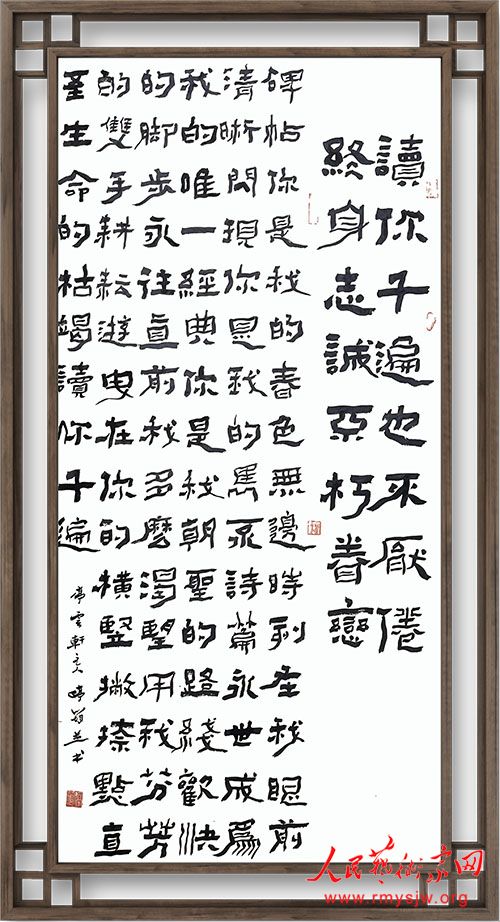 讀你千遍也不厭倦
終身志誠亞朽眷戀
碑帖你是我的春色無邊時刻在我眼前
清晰閃現你是我的詩篇永世成為
我的唯一經典你是我朝聖的路綫歡快
的脚步永往直前我多麼渴望用我芬芳
的雙手耕耘遊曳在你的橫豎撇捺點直
至生命的枯竭讀你千遍
雲軒文并书
人民藝術家网
www.rmysjw.org